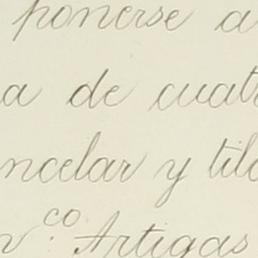 ponerse a
a de cuat
ncelar y til
n co. Artigas